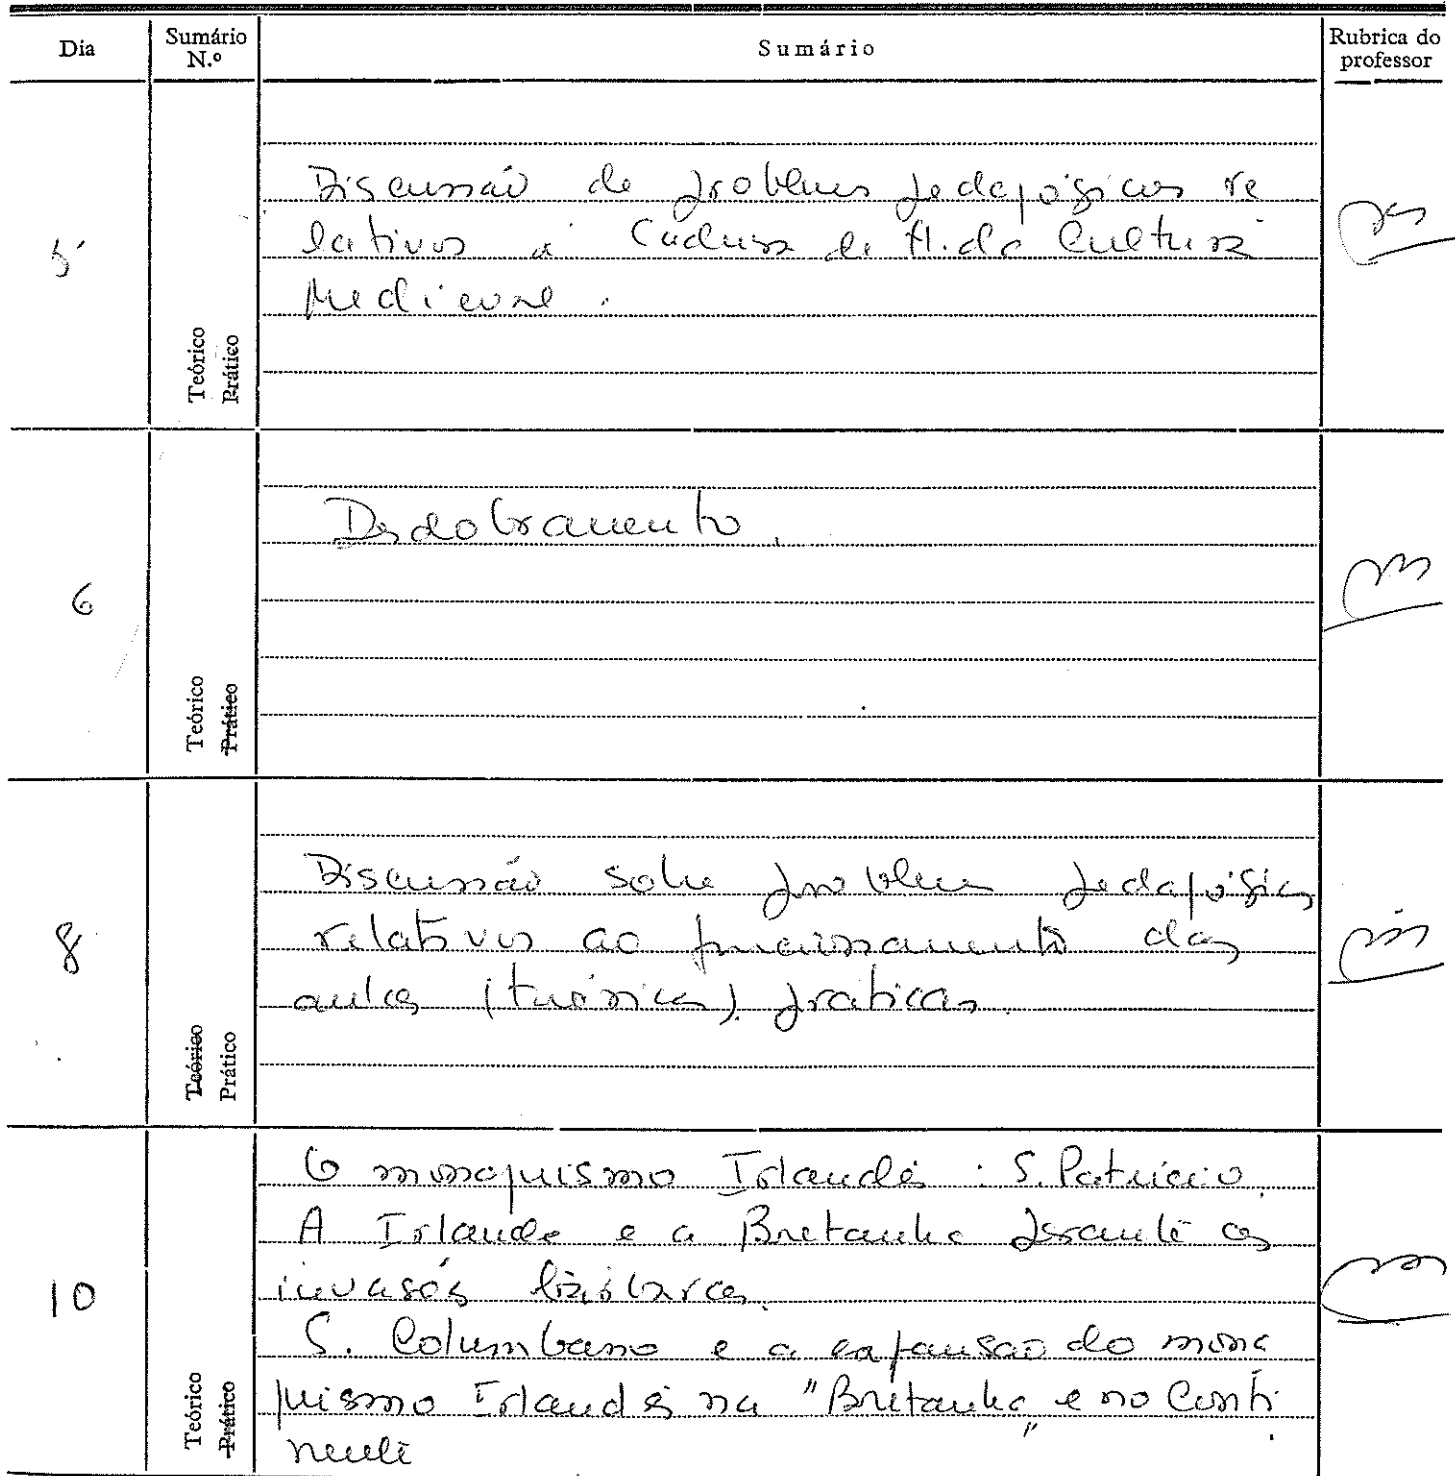 Dia
Sumário N.º
Sumário
Rubrica do professor
5
Teórico
Prático
Discussão de problemas pedagógicos re
lativos à Cadeira de H. da Cultura
Medieval.
6
Teórico
Prático
Desdobramento.
8
Teórico
Prático
Discussão sobre problemas pedagógicos
relativos ao funcionamento das
aulas (teóricas) práticas.
10
Teórico
Prático
O monaquismo Irlandês : S. Patrício.
A Irlanda e a Bretanha durante as
invasões bárbaras.
S. Columbano e a expansão do mona
quismo Irlandês na "Bretanha" e no Conti
nente